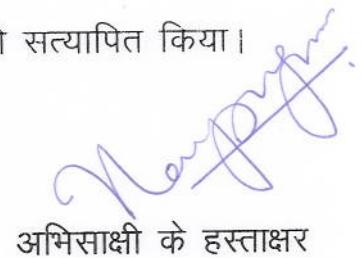 सत्यापित किया।
अभिसाक्षी के हस्ताक्षर